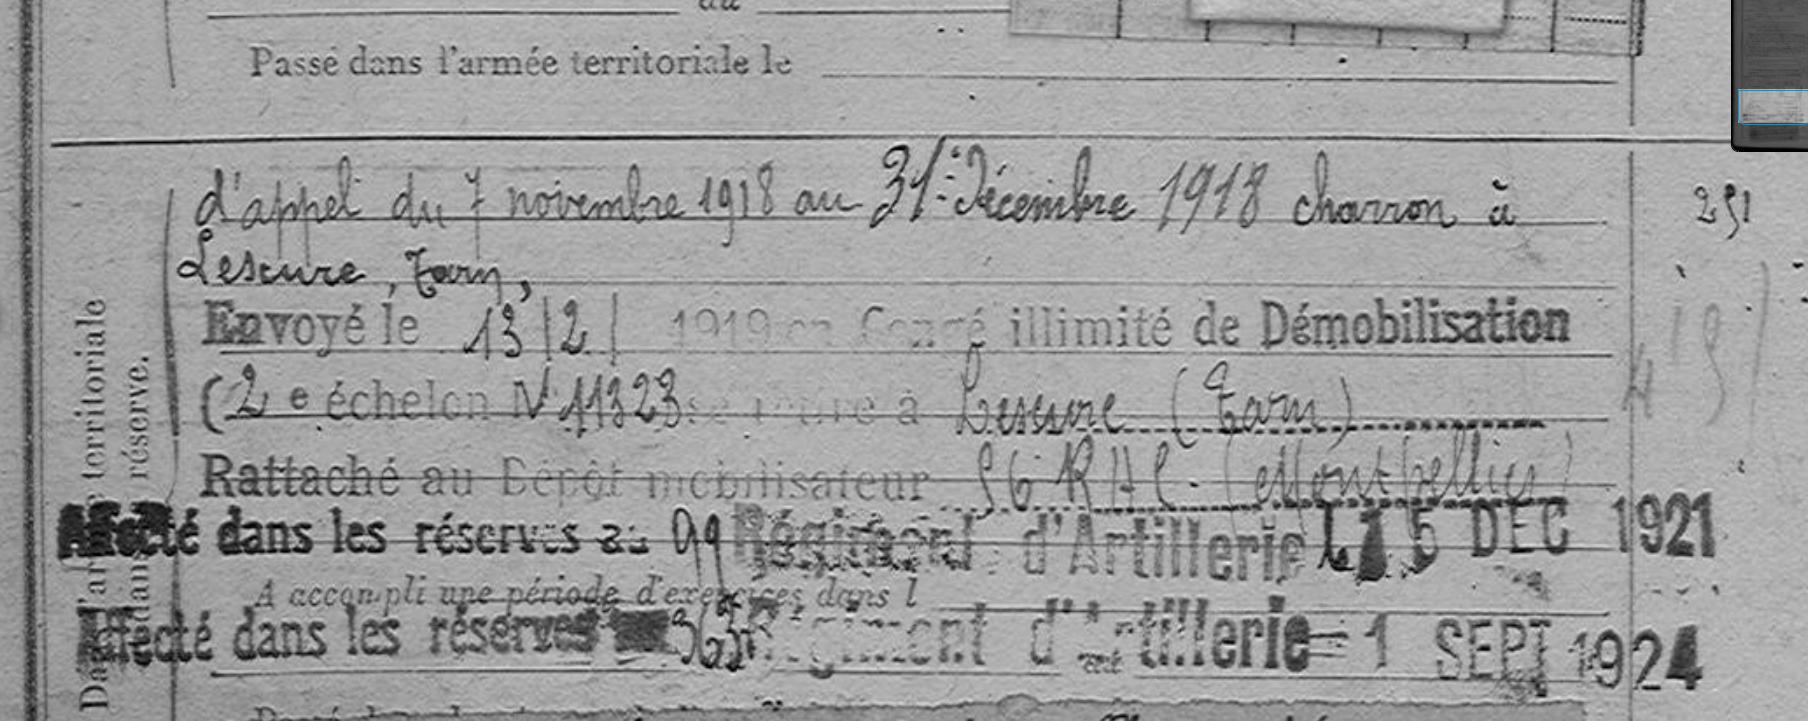 du
Passé dans l'armée territoriale le
d'appel du 7 novembre 1918 au 31 Décembre 1918 charron à
251
Lescure, Tarn,
Envoyé le 13/2/ 1919 en Congé illimité de Démobilisation
(2e échelon N° 11323 se retire à Lescure (Tarn)
Rattaché au Dépôt mobilisateur 56 RAC. (Montpellier)
Affecté dans les réserves au 99 Régiment d'Artillerie 15 DEC 1921
A accompli une période d'exercices dans l
Affecté dans les réserves Régiment d'Artillerie 1 SEPT 1924
territoriale
réserve.